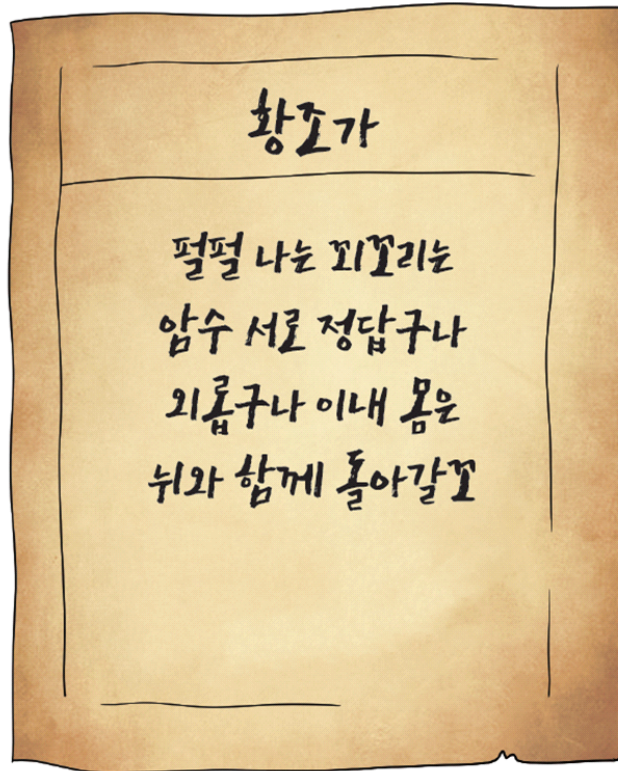 황조가
펄펄 나는 꾀꼬리는
암수 서로 정답구나
외롭구나 이내 몸은
뉘와 함께 돌아갈꼬